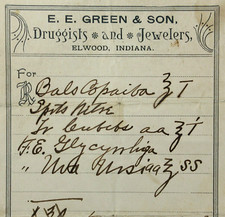 E. E. GREEN & SON,
Druggists and Jewelers,
ELWOOD, INDIANA.
For
R Bals Copaiba ʒ T
Spts Nitre
Tr Cubebs aa ʒ T
F. E. Glycyrrhiza
" Uva Ursi aa ʒ SS